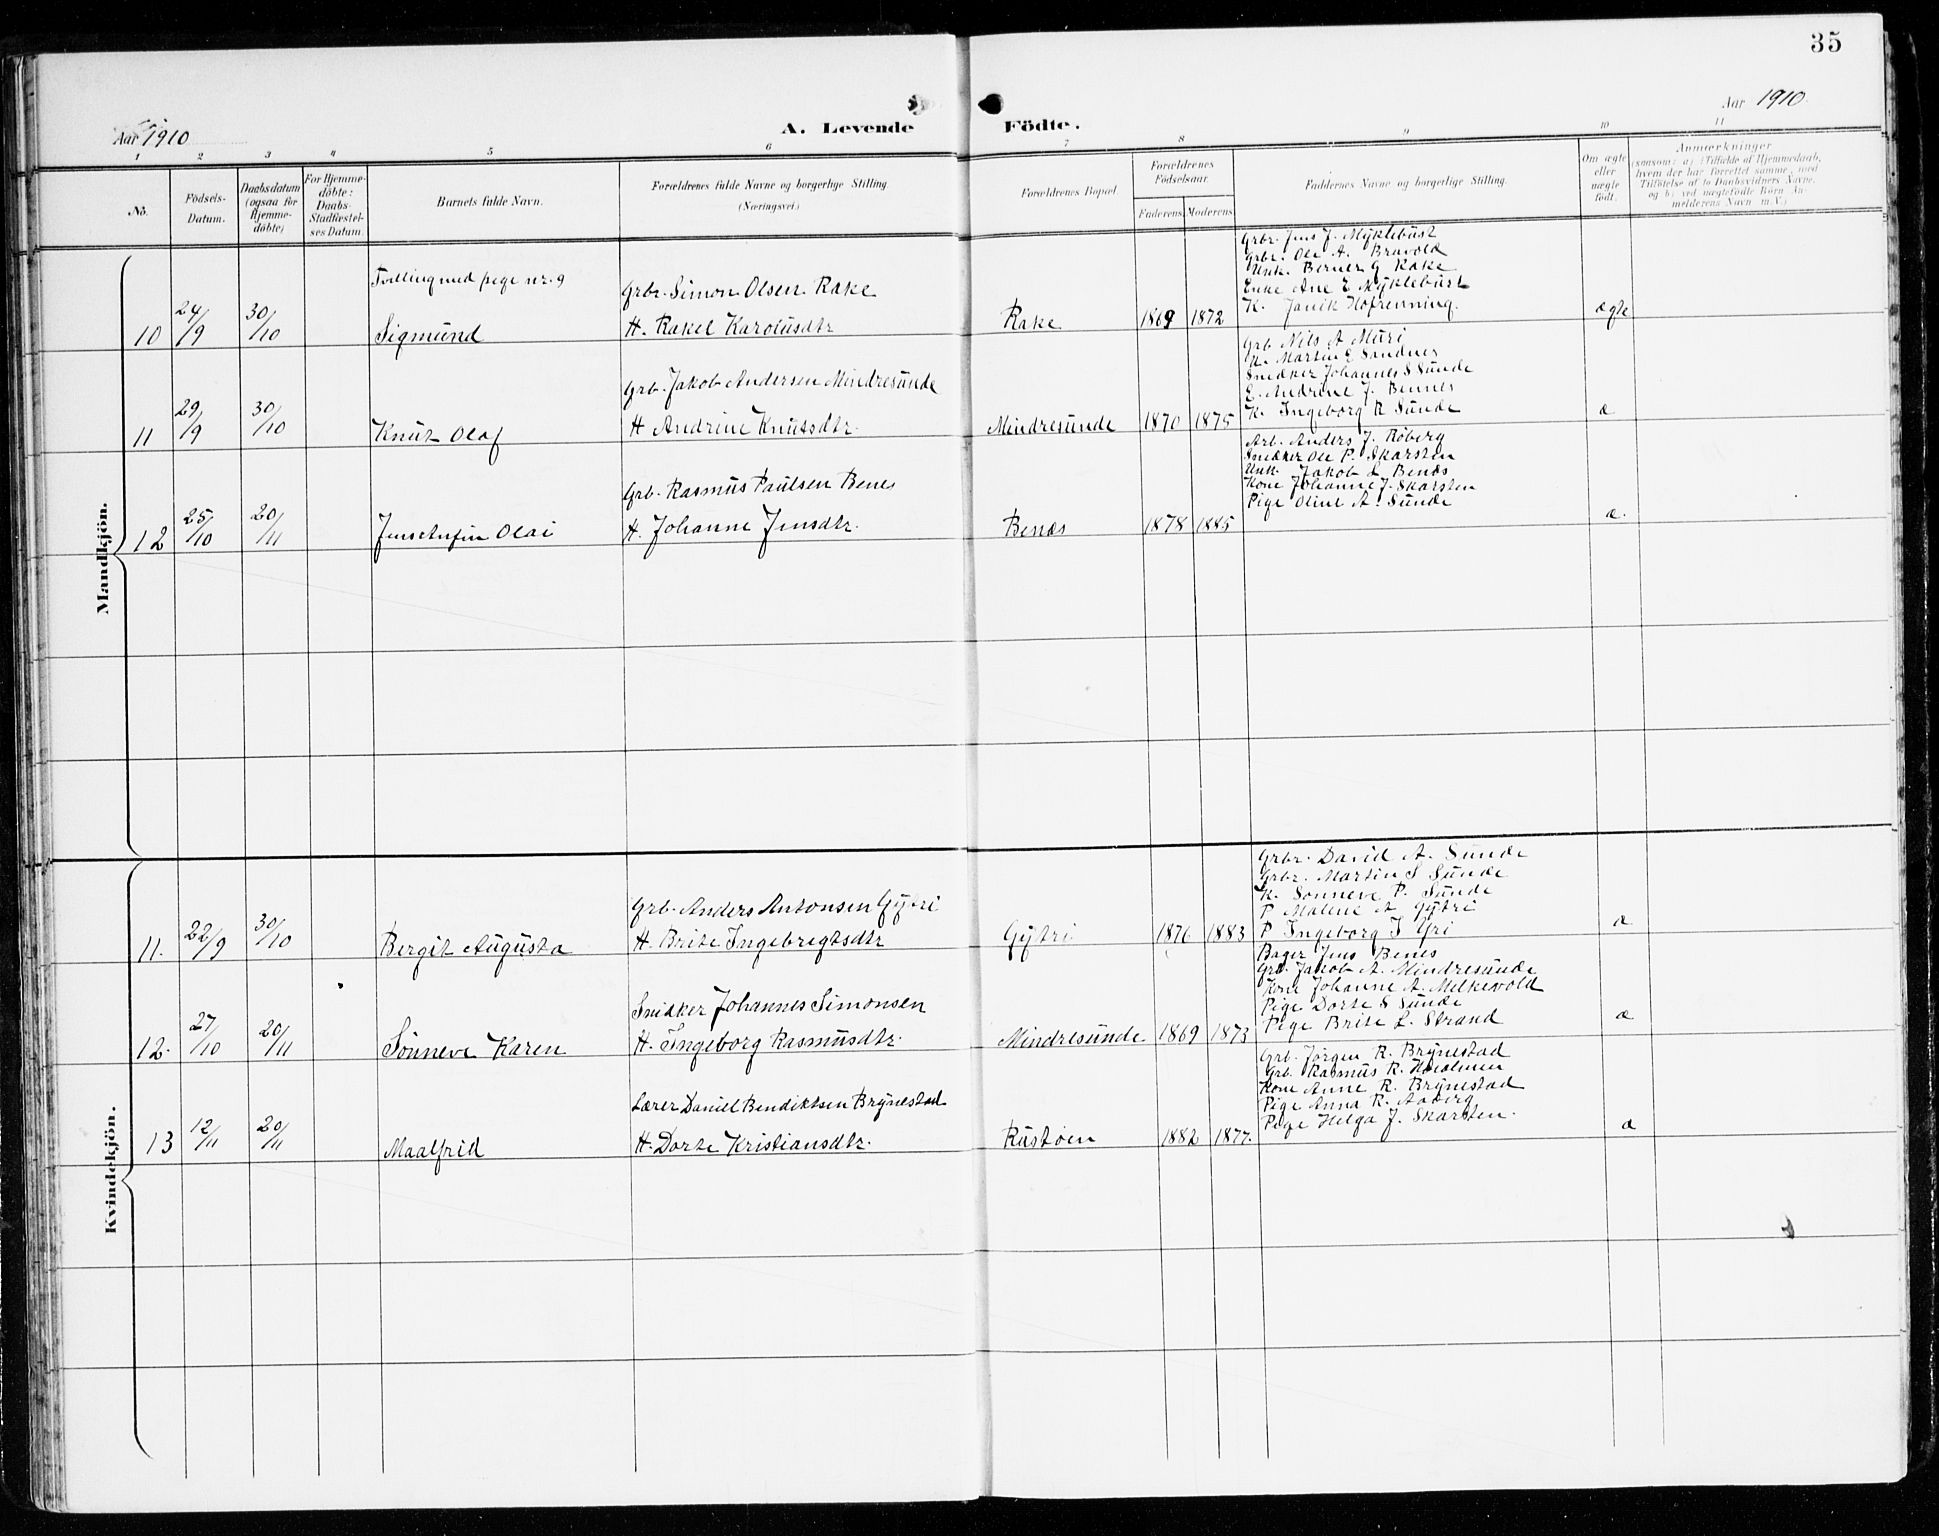 35
Aar 1910
Aar 1910.
A. Levende Födte.
1 2 3 4 5 6 7 8 9 10 11
No.
Födsels-
Datum.
Daabsdatum
(ogsaa for
Hjemme-
döbte)
For Hjemme-
döbte:
Daabs-
Stadfæstel-
ses Datum.
Barnets fulde Navn.
Forældrenes fulde Navne og borgerlige Stilling.
(Næringsvei.)
Forældrenes Bopæl.
Forældrenes
Födselsaar.
Faderens
Moderens
Faddernes Navne og borgerlige Stilling.
Om ægte
eller
uægte
født.
Anmærkninger
(saasom: a) i Tilfælde af Hjemmedaab,
hvem der har forrettet samme, med
Tilföielse af to Daabsvidners Navne,
og b) ved uægtefödte Börn An-
melderens Navn m.V.)
Mandkjön.
Tvilling med pige nr. 9
10 24/9 30/10 Sigmund
Grbr. Simon Olsen Rake
H. Rakel Karolusdtr
Rake 1869 1872
Grbr. Jens J. Myklebust
Grbr. Ole A. Bravold
Unk. Berner G Rake
Enke Ane E Myklebust
K. Janik Hoprenning.
ægte
11 29/9 30/10 Knut Olaf
Grb. Jakob Andersen Mindresunde
H Andrine Knutsdtr.
Mindresunde 1870 1875
Grb Nils A Muri
K. Martin E Sandnes
Snedker Johannes S Sunde
E. Andrine J. Bennes
K. Ingeborg R Sunde
æ
12 25/10 20/11 Olai
Grb. Rasmus Paulsen Benes
H. Johanne Jensdtr.
Benæs 1878 1885
Arb. Anders J. Röberg
Snedker Ole P. Skarsten
Unk. Jakob L Benæs
Kone Johanne J. Skarsten
Pige Oline A. Sunde
æ.
Kvindekjön.
11. 22/9 30/10 Bergit Augusta
Grb. Anders Antonsen Gytri
H. Brite Ingebregtsdtr
Gytri 1876 1883
Grbr. David A. Sunde
Grbr. Martin S Sunde
K. Sonneve P. Sunde
P Malene A Gytri
P Ingeborg I Yri
æ
12. 27/10 20/11 Sonneve Karen
Snidker Johannes Simonsen
H. Ingeborg Rasmusdtr.
Mindresunde. 1869 1873
Bager Jens Benes
Grb. Jakob A. Mindresunde
Kone Johanne A. Melkevold
Pige Dorte S Sunde
Pige Brite L. Strand
æ
13 12/11 20/11 Maalfrid
Lærer Daniel Bendiktsen Brynestad
H. Dorte Kristiansdtr.
Rustøen 1882 1877.
Grb. Jørgen R. Brynestad
Grb. Rasmus R.
Kone Anne R. Brynestad
Pige Anna R. Aaberg
Pige Helga J. Skarsten.
æ